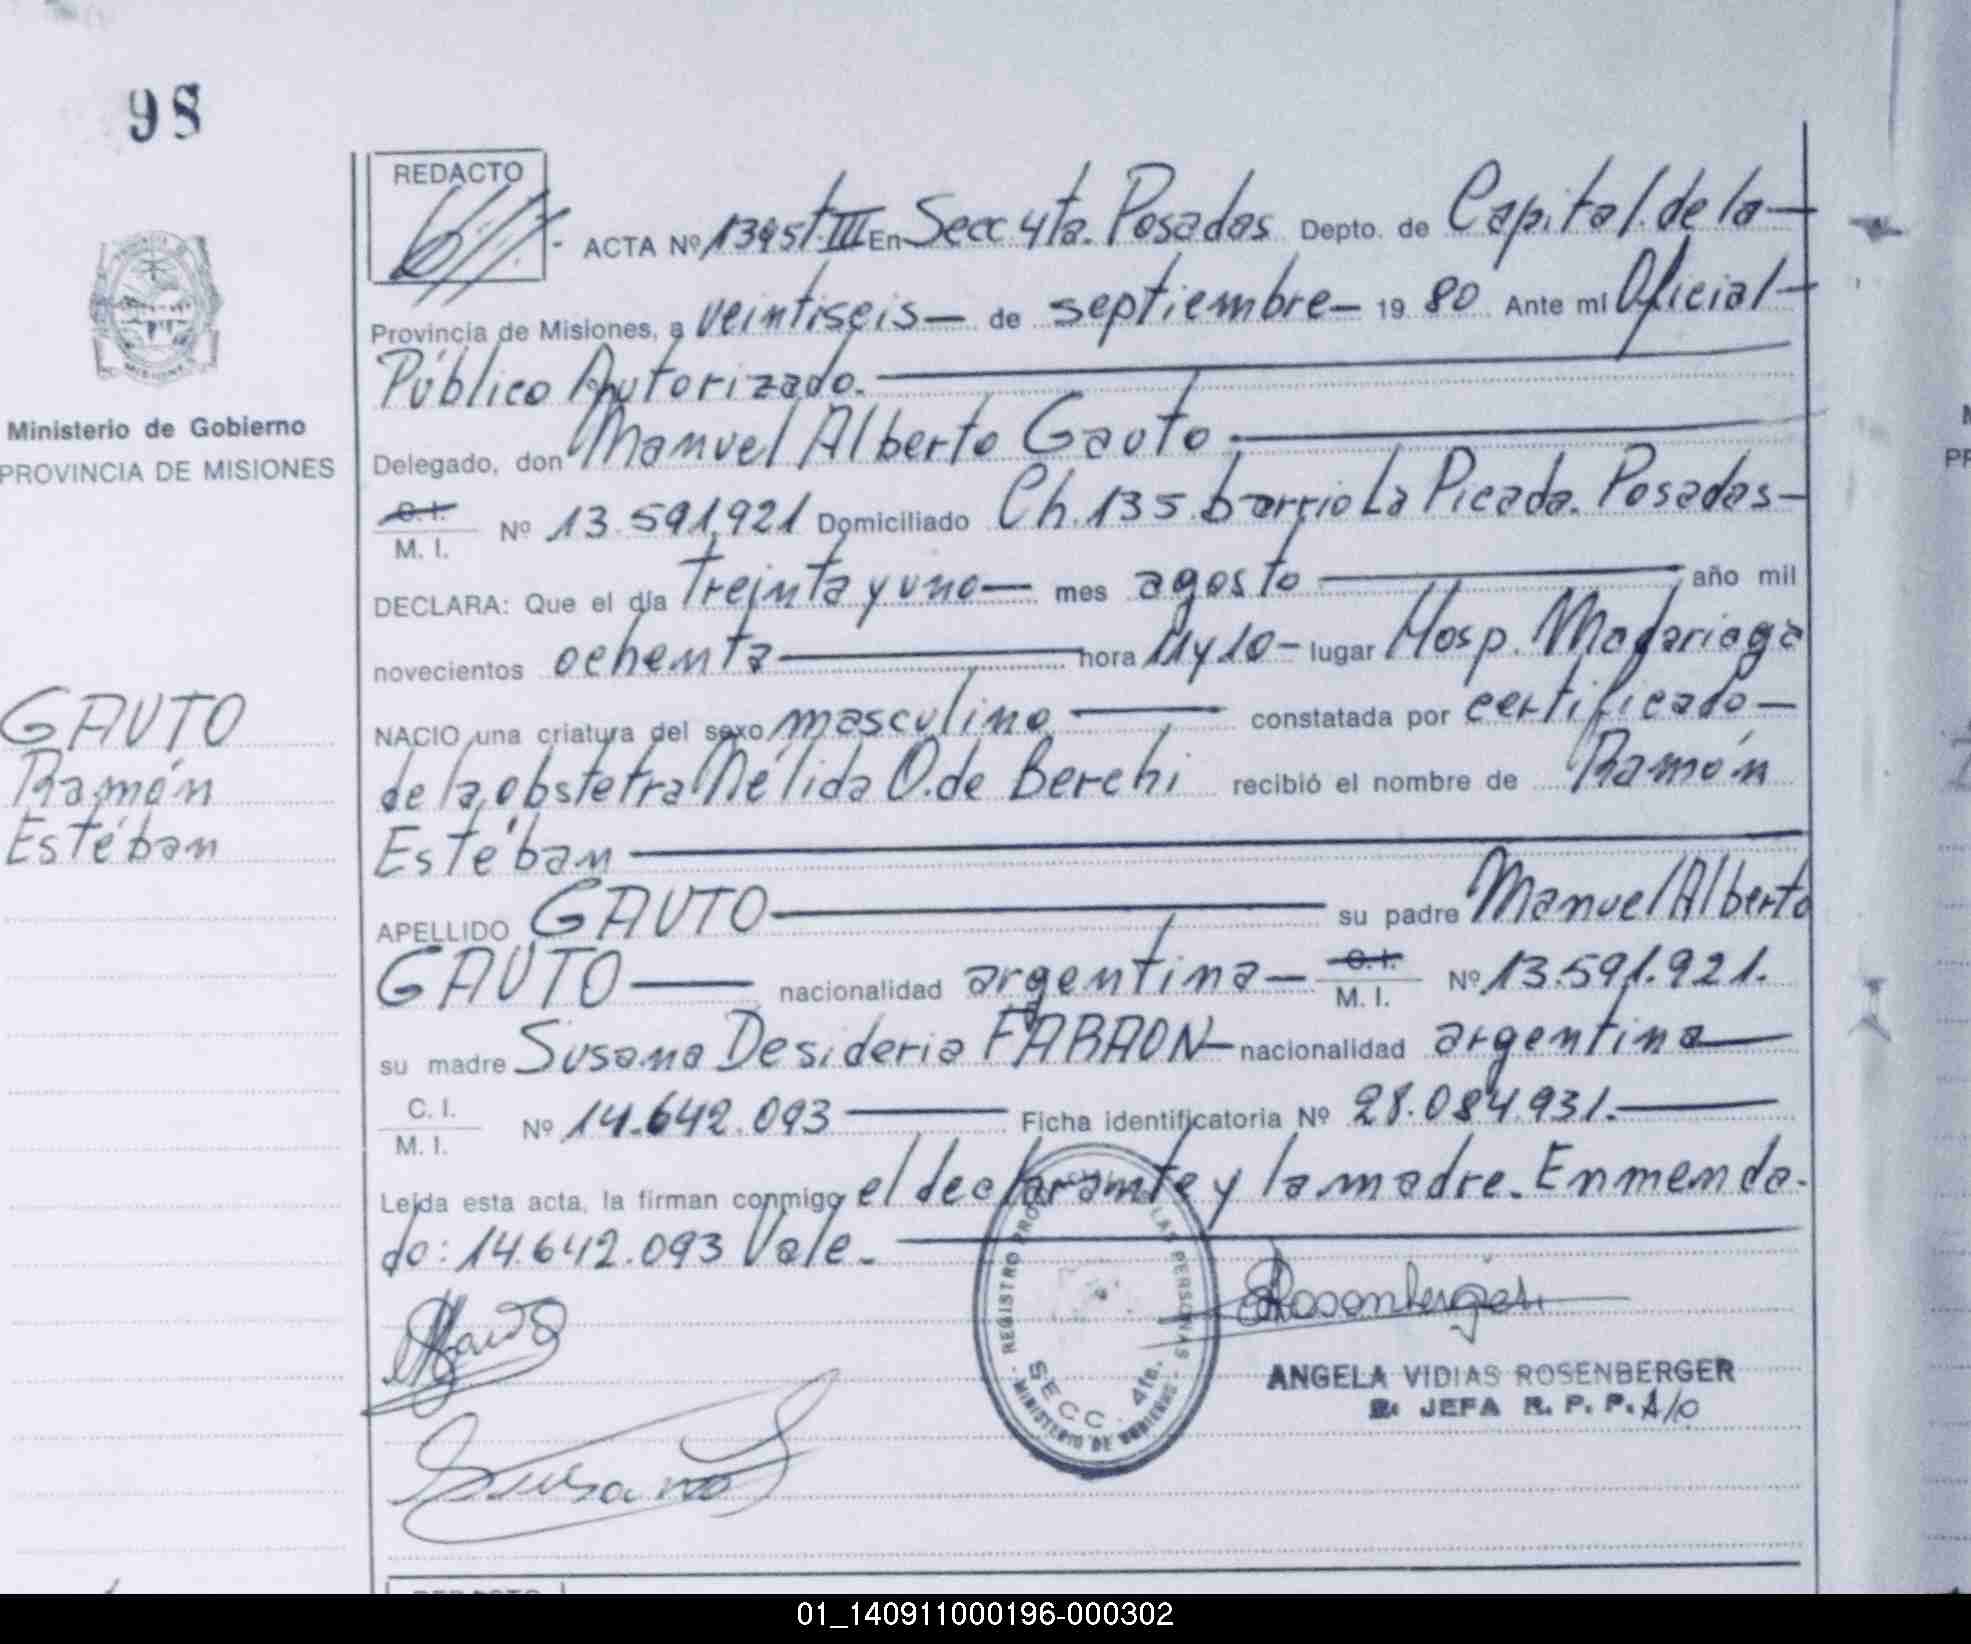 98
REDACTO
ACTA Nº 1395 t. III En Secc 4ta. Posadas Depto. de Capital. de la
Provincia de Misiones, a veintiseis de septiembre 19 80 Ante mi Oficial
Público Autorizado.
Delegado, don Manuel Alberto Gauto
Ministerio de Gobierno
PROVINCIA DE MISIONES
C. I.
M. I. Nº 13.591.921 Domiciliado Ch. 135. barrio La Picada. Posadas
DECLARA: Que el día treinta y uno mes agosto año mil
novecientos ochenta hora 11 y 10 lugar Hosp. Madariaga
NACIO una criatura del sexo masculino constatada por certificado
de la obstetra Nélida O. de Berchi recibió el nombre de Ramón
Estéban
GAUTO
Ramón
Estéban
APELLIDO GAUTO su padre Manuel Alberto
GAUTO nacionalidad argentina C. I.
M. I. Nº 13.591.921.
su madre Susana Desideria FARAON nacionalidad argentina
C. I.
M. I. Nº 14.642.093 Ficha identificatoria Nº 28.084.931.
Leída esta acta, la firman conmigo el declarante y la madre. Enmenda-
do: 14.642.093 Vale.
Gauto
Susana
Rosenberger
REGISTRO PROVINCIAL DE LAS PERSONAS
SECC. 4ta.
MINISTERIO DE GOBIERNO
ANGELA VIDIAS ROSENBERGER
2. JEFA R. P. P. A/C
REDACTO
01_140911000196-000302